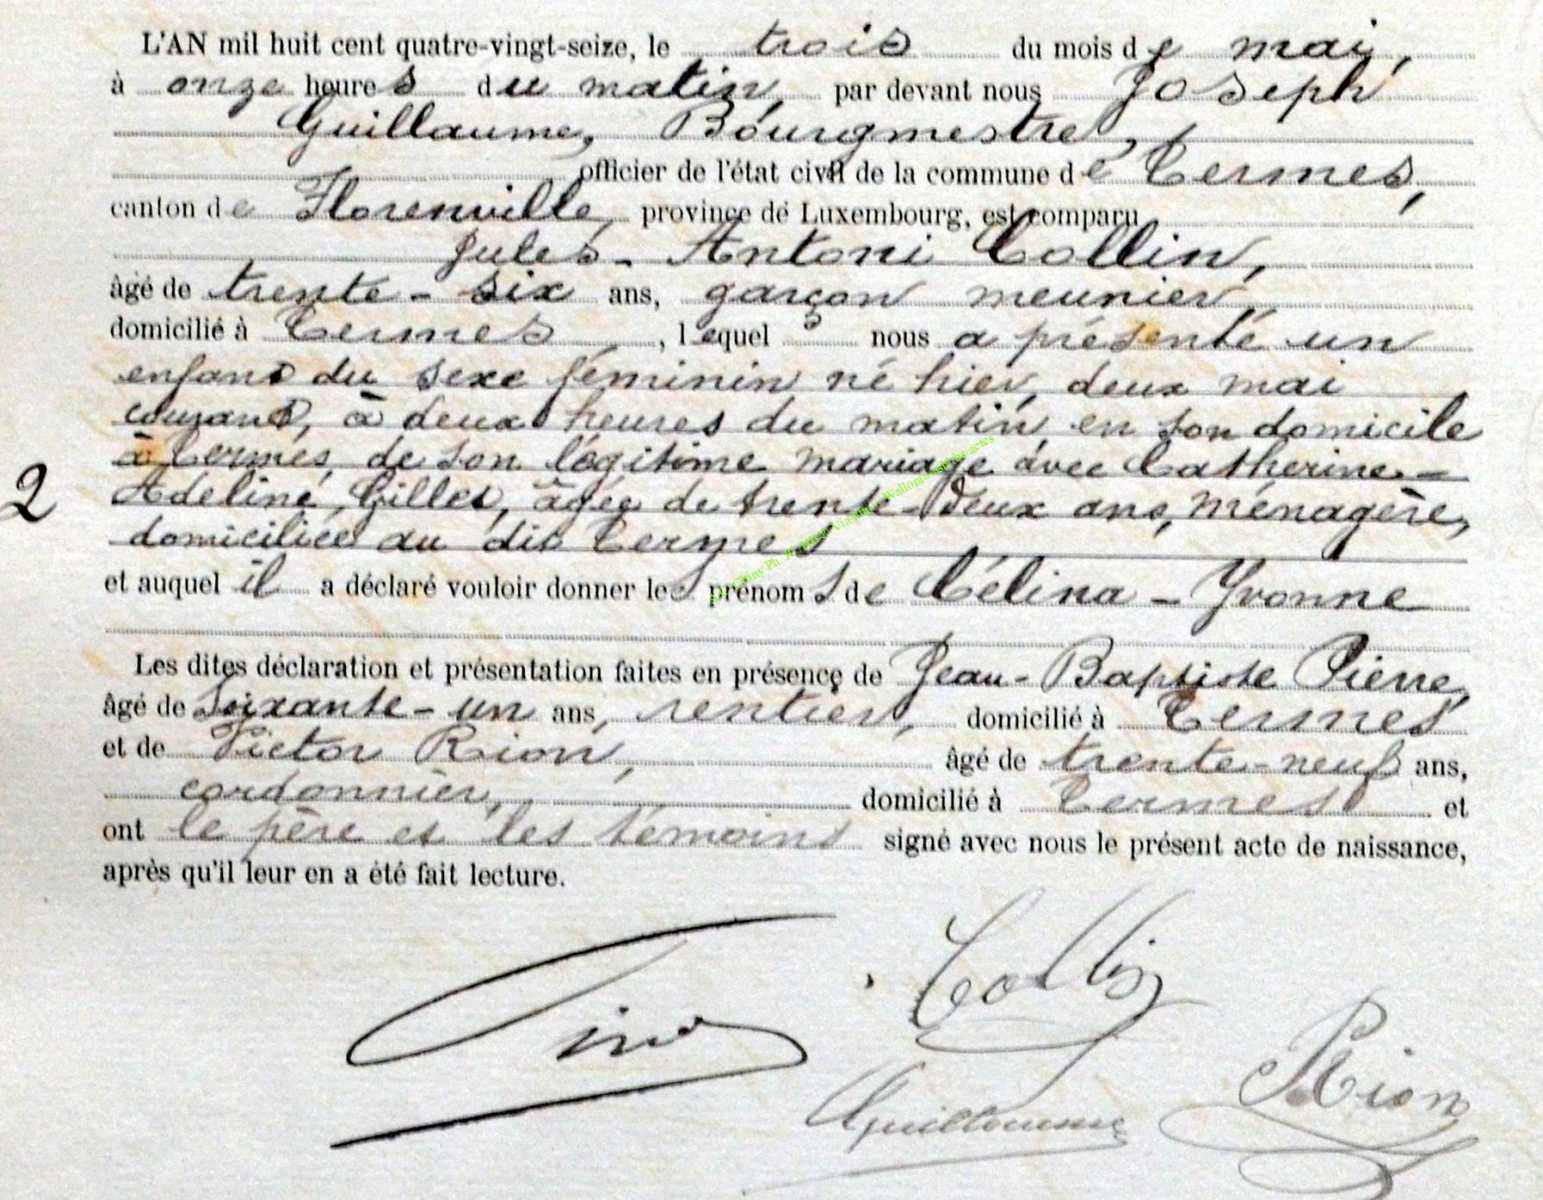 L'AN mil huit cent quatre-vingt-seize, le trois du mois de mai,
à onze heures du matin, par devant nous Joseph
Guillaume, Bourgmestre,
officier de l'état civil de la commune de Termes,
canton de Florenville, province de Luxembourg, est comparu
Jules-Antoni Collin,
âgé de trente-six ans, garçon meunier,
domicilié à Termes, lequel nous a présenté un
enfant du sexe féminin né hier, deux mai
courant, à deux heures du matin, en son domicile
à Termes, de son légitime mariage avec Catherine-
2 Adeline, Gilles, âgée de trente-deux ans, ménagère,
domiciliée au dit Termes
et auquel il a déclaré vouloir donner les prénoms de Célina-Yvonne
Les dites déclaration et présentation faites en présence de Jean-Baptiste Pierre,
âgé de soixante-un ans, rentier, domicilié à Termes
et de Victor Rion, âgé de trente-neuf ans,
cordonnier, domicilié à Termes et
ont le père et les témoins signé avec nous le présent acte de naissance,
après qu'il leur en a été fait lecture.
Collin
Rion
Guillaume